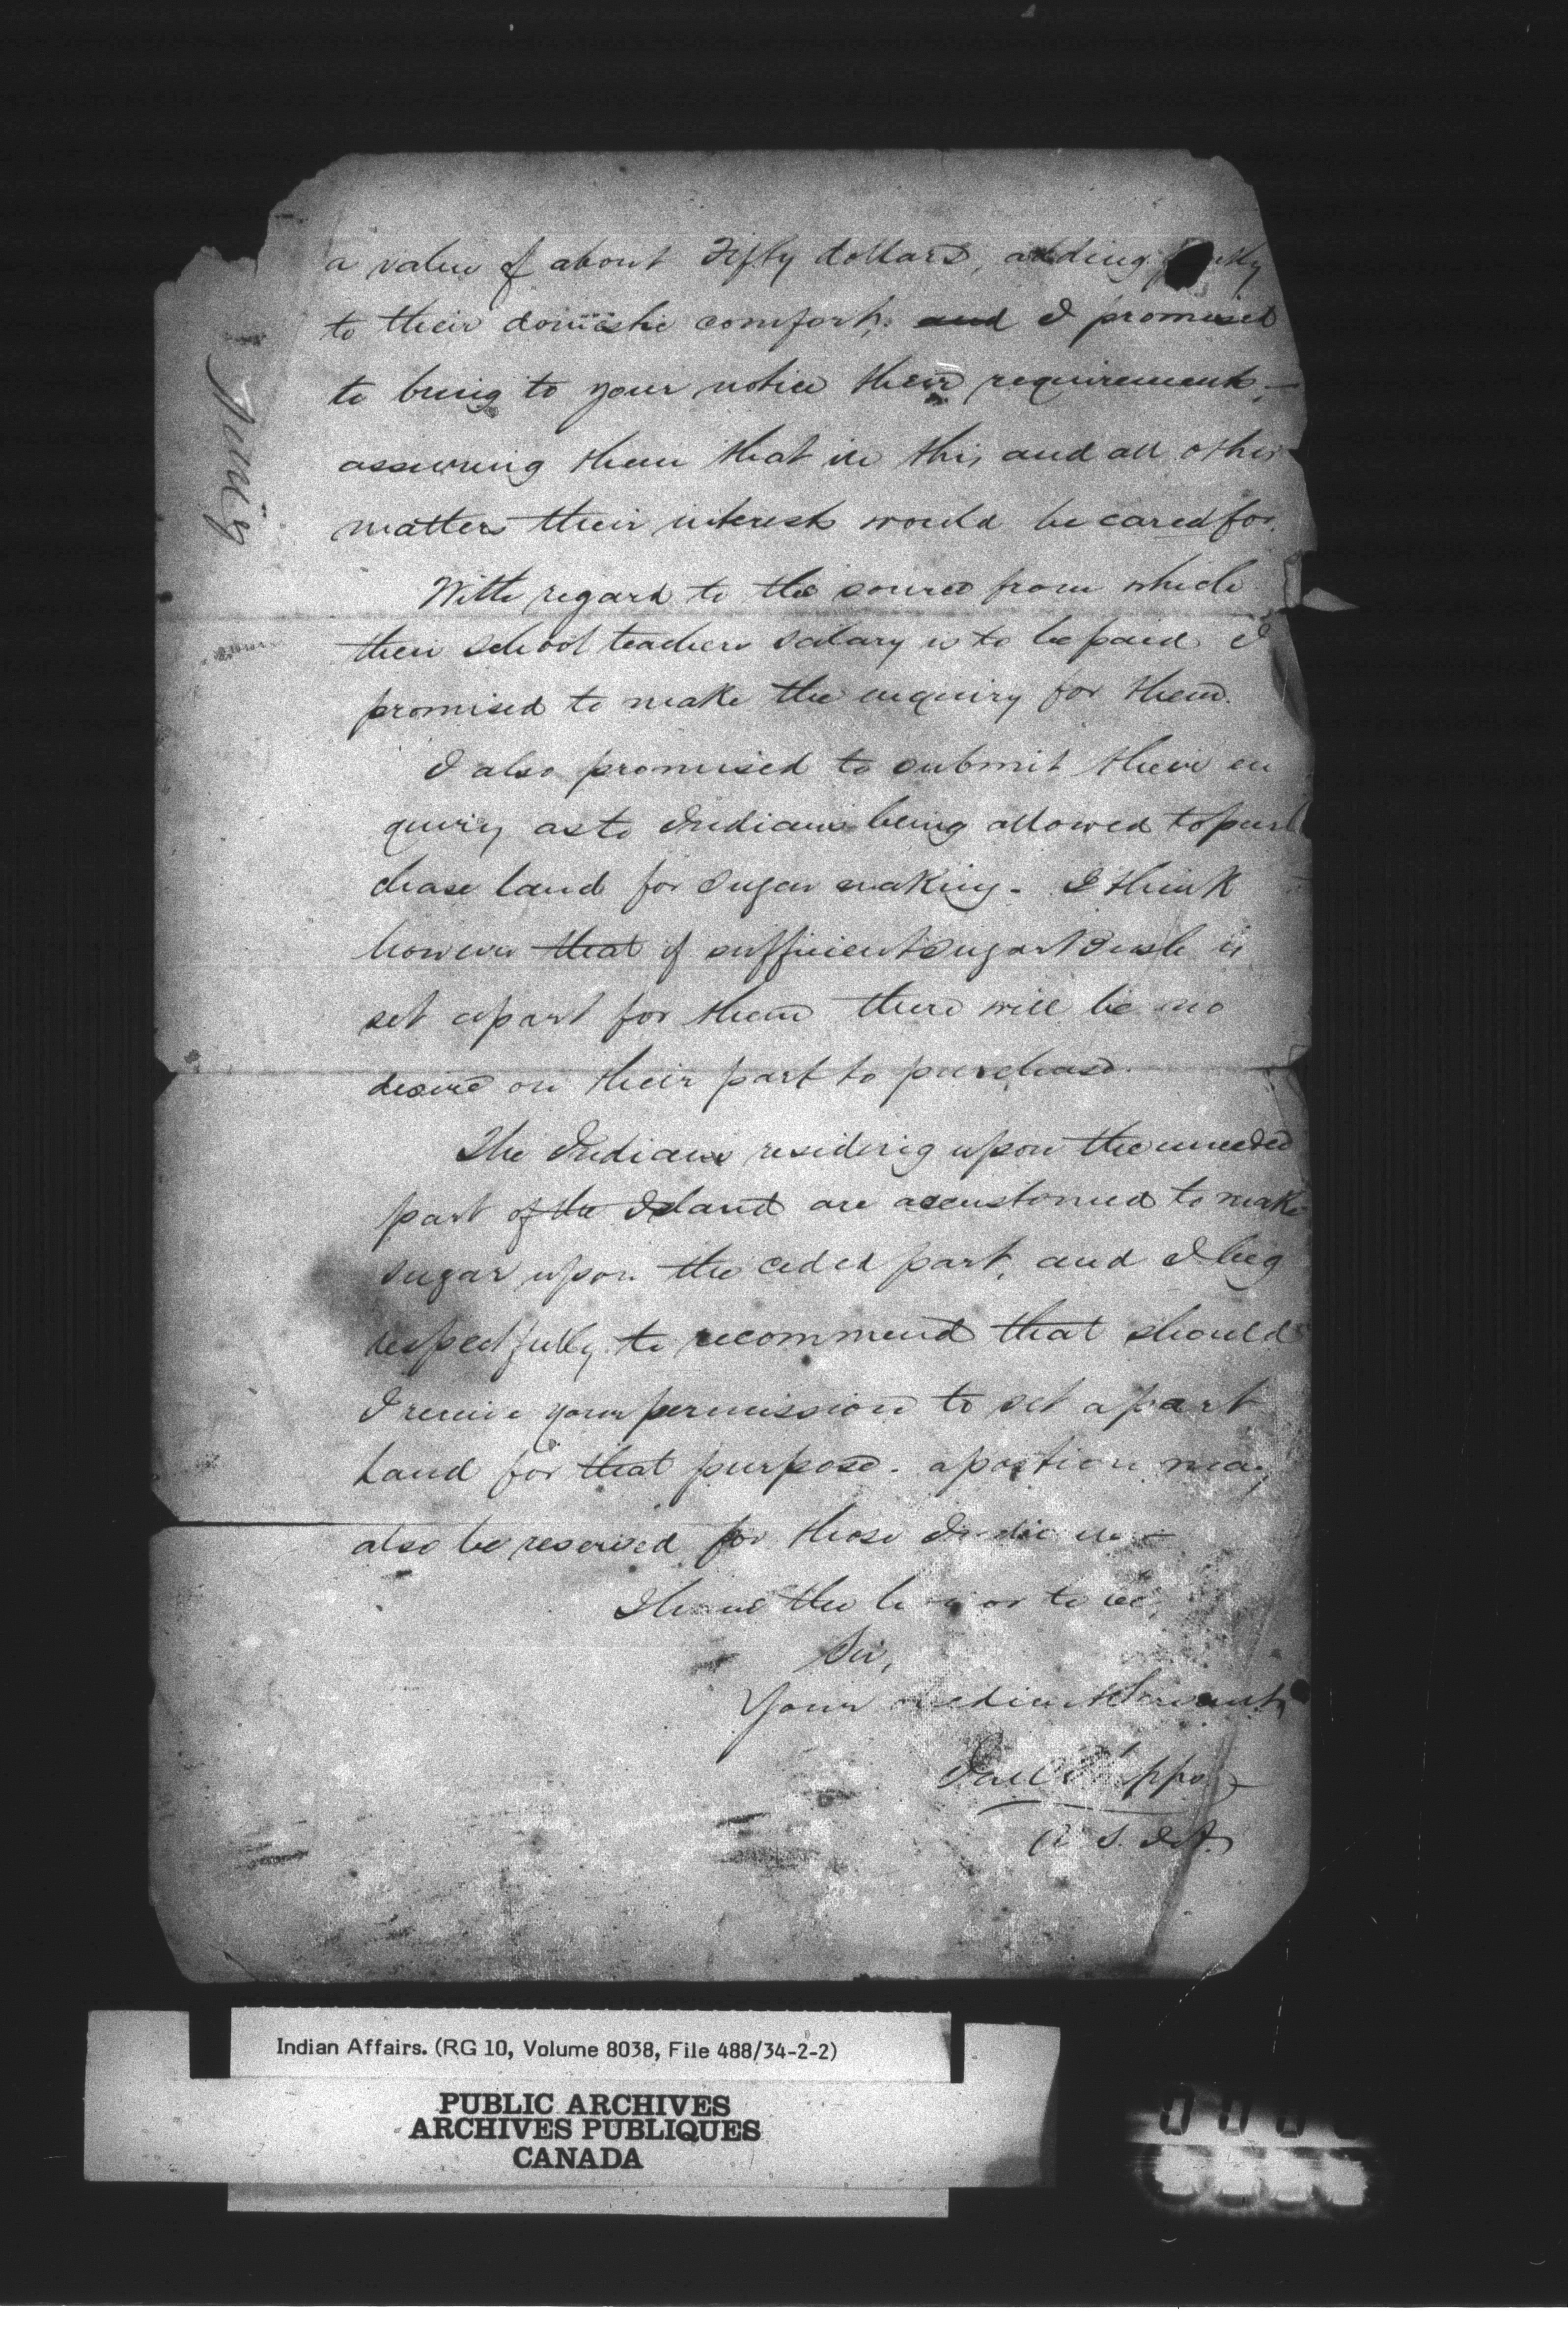 a value of about Fifty dollars, adding
to their domestic comfort; and I promised
to bring to your notice their requirements,—
assuring them that in this and all other
matters their interests would be cared for.
With regard to the source from which
their school teachers salary is to be paid I
promised to make the enquiry for them.
I also promised to submit their en
quiry as to Indians being allowed to pur
chase land for sugar making - I think
however that if sufficient Sugar Bush is
set apart for them there will be no
desire on their part to purchase.
The Indians residing upon the unceded
part of the Island are accustomed to make
sugar upon the ceded part, and I beg
respectfully to recommend that should
I receive your permission to set apart
land for that purpose. a portion may
also be reserved for those Indians—
I have the honor to be,
Sir,
Your obedient Servant,
Phipps
V. S. I. A.
Indian Affairs. (RG 10, Volume 8038, File 488/34-2-2)
PUBLIC ARCHIVES
ARCHIVES PUBLIQUES
CANADA